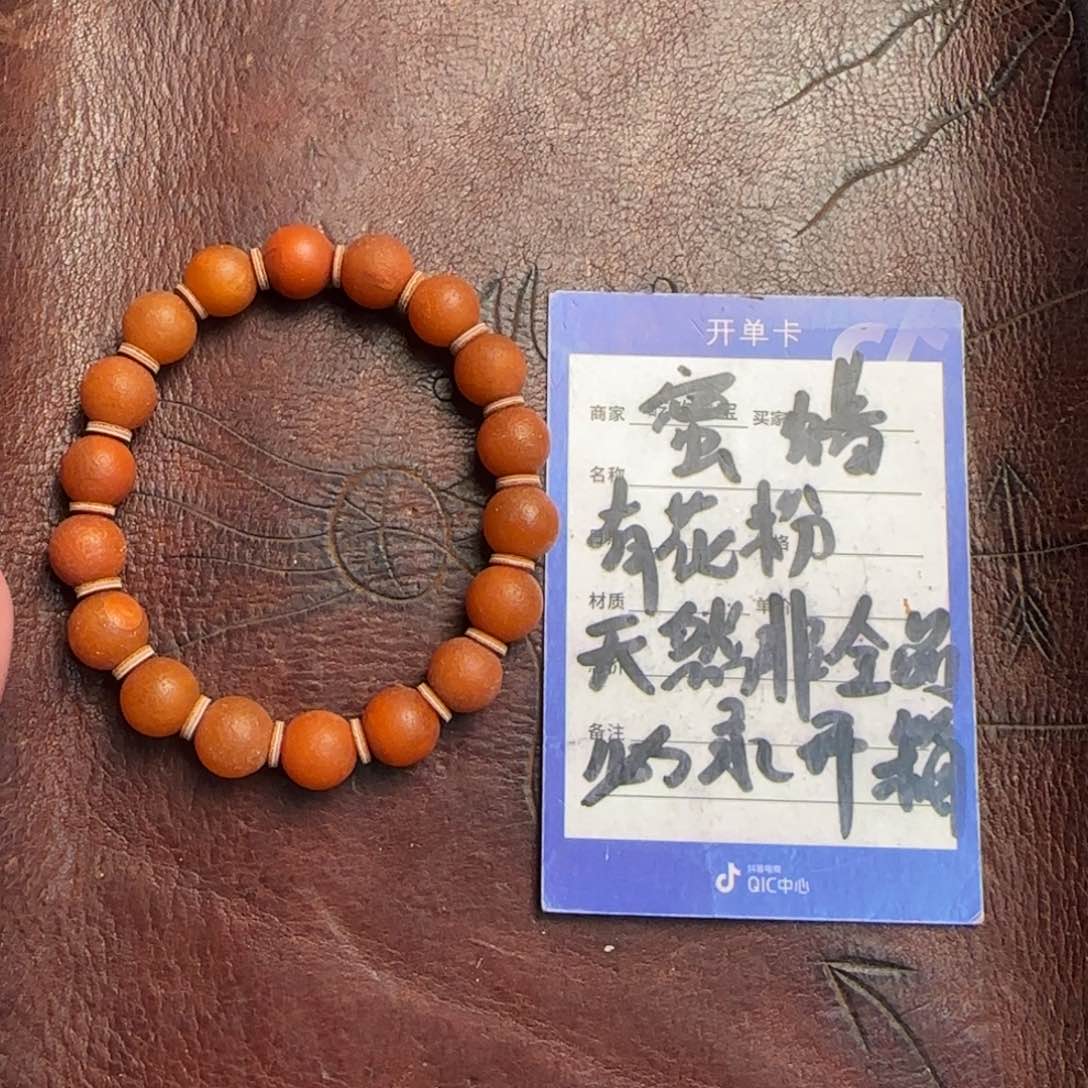 开单卡
商家 宝 买家
蜜
名称
有花粉
材质 单
天然非全通
备注
开箱
抖音电商
QIC中心